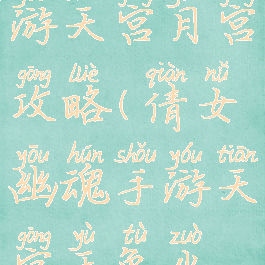 游天宫月宫
gōng lüè qiàn nǚ
攻略(倩女
yōu hún shǒu yóu tiān
幽魂手游天
gōng yù tù zuò